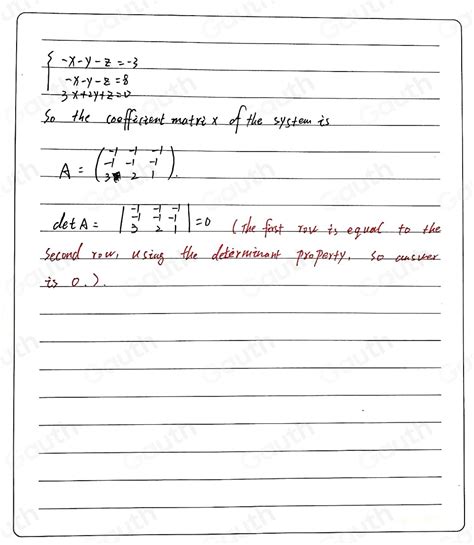 { -x-y-z=-3
-x-y-z=8
3x+2y+z=0
So the coefficient matrix of the system is
A = ( -1 -1 -1
-1 -1 -1
3 2 1 ).
det A = | -1 -1 -1
-1 -1 -1
3 2 1 | = 0 (The first row is equal to the
second row, using the determinant property, so answer
is 0.).